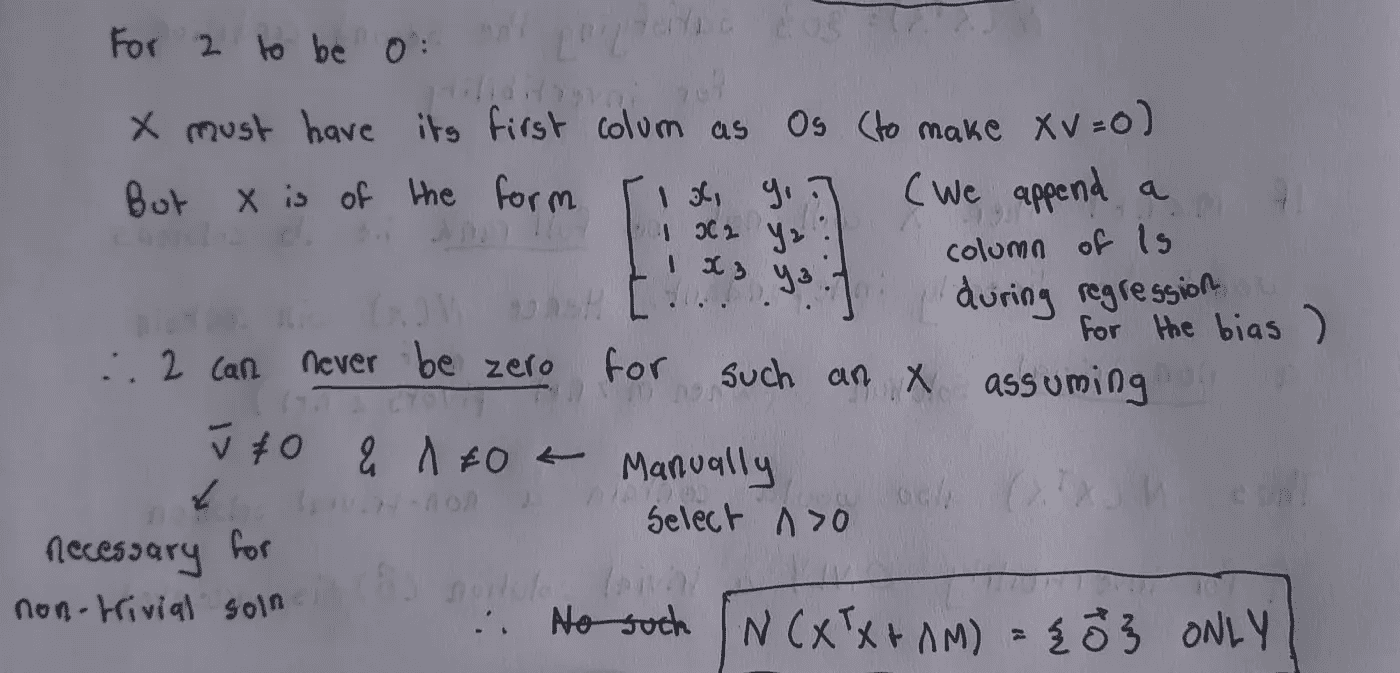 For 2 to be 0:
X must have its first colum as 0s (to make XV=0)
But X is of the form [ 1 x1 y1 : (We append a
1 x2 y2 : column of 1s
1 x3 y3 : during regression
. . . . . ] for the bias )
∴ 2 can never be zero for such an X assuming
v̄ ≠0 & λ ≠0 ← Manually
Select λ >0
necessary for
non-trivial soln
∴ No such N (XᵀX + λM) = { 0⃗ } ONLY